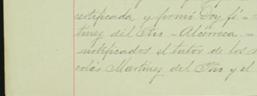 ertificada y firmó Doy fé -
tinez del Rio - Alcorroca -
notificados el tutor de los
colás Martinez del Rio y el